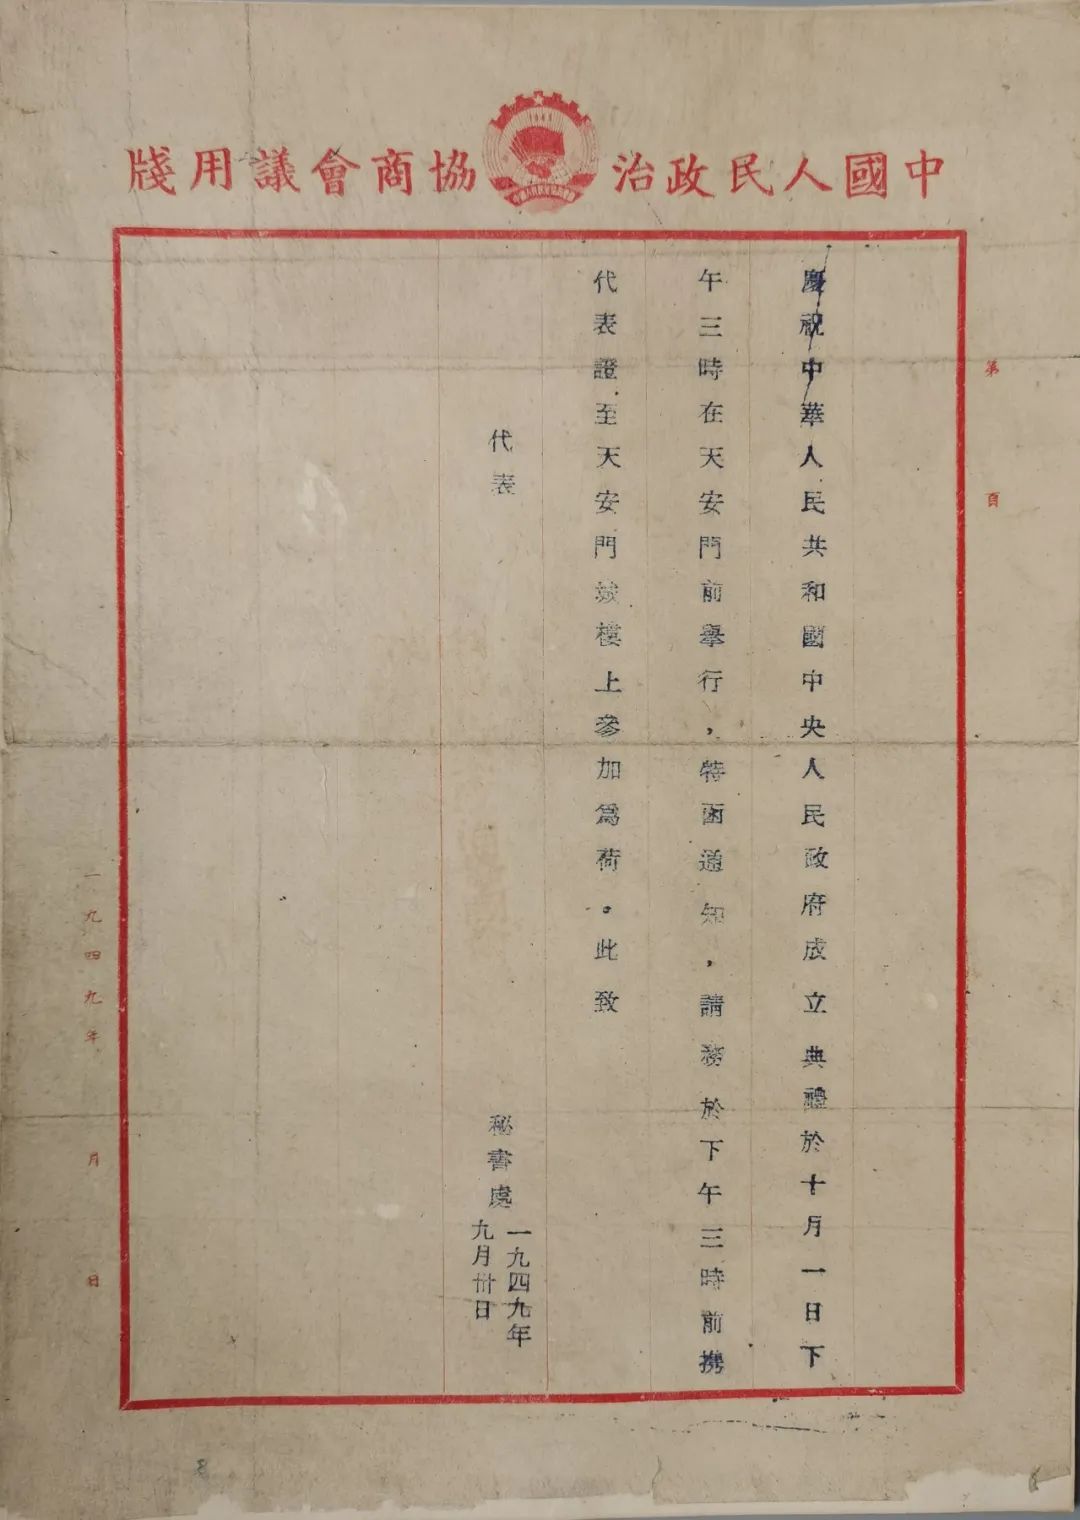 中國人民政治協商會議用牋
第 頁
慶祝中華人民共和國中央人民政府成立典禮於十月一日下
午三時在天安門前舉行，特函通知，請務於下午三時前携
代表證至天安門城樓上參加爲荷。此致
代表
秘書處
一九四九年
九月卅日
一九四九年 月 日